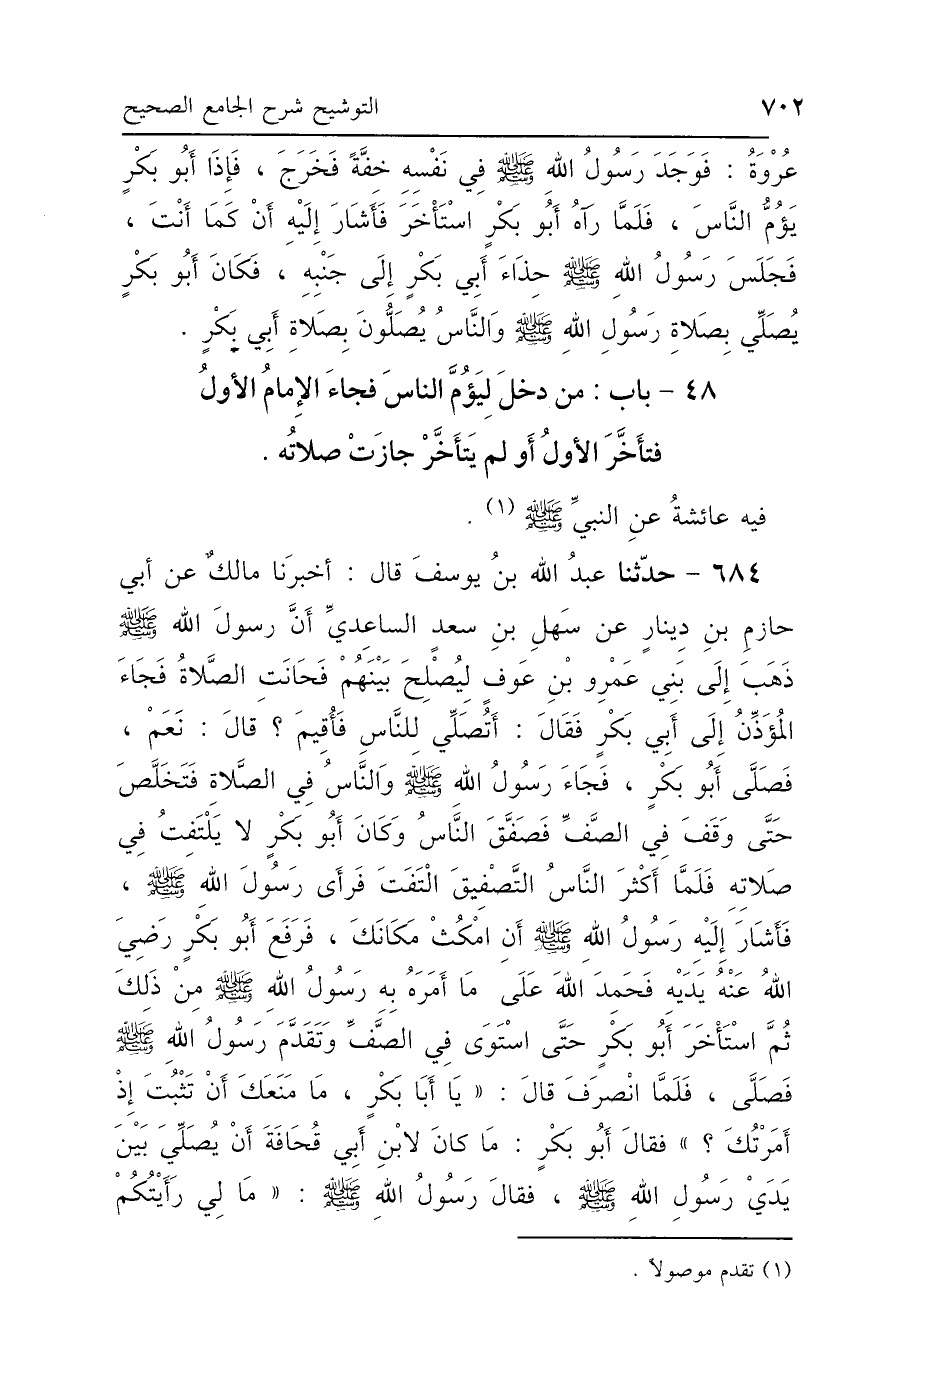 ٧٠٢ التوشيح شرح الجامع الصحيح
عُرْوَةُ : فَوَجَدَ رَسُولُ اللهِ ﷺ فِي نَفْسِهِ خِفَّةً فَخَرَجَ ، فَإِذَا أَبُو بَكْرٍ
يَؤُمُّ النَّاسَ ، فَلَمَّا رَآهُ أَبُو بَكْرٍ اسْتَأْخَرَ فَأَشَارَ إِلَيْهِ أَنْ كَمَا أَنْتَ ،
فَجَلَسَ رَسُولُ اللهِ ﷺ حِذَاءَ أَبِي بَكْرٍ إِلَى جَنْبِهِ ، فَكَانَ أَبُو بَكْرٍ
يُصَلِّي بِصَلاةِ رَسُولِ اللهِ ﷺ وَالنَّاسُ يُصَلُّونَ بِصَلاةِ أَبِي بَكْرٍ .
٤٨ - باب : من دخلَ لِيَؤُمَّ الناسَ فجاءَ الإمامُ الأولُ
فتأخَّرَ الأولُ أَو لم يَتأخَّرْ جازَتْ صلاتُه .
فيه عائشةُ عنِ النبيِّ ﷺ (١) .
٦٨٤ - حدّثنا عبدُ الله بنُ يوسفَ قال : أخبرَنا مالكٌ عن أبي
حازمِ بنِ دينارٍ عن سَهلِ بنِ سعدٍ الساعديِّ أنَّ رسولَ الله ﷺ
ذَهَبَ إِلَى بَنِي عَمْرِو بْنِ عَوفٍ لِيُصْلِحَ بَيْنَهُمْ فَحَانَتِ الصَّلاةُ فَجَاءَ
المُؤَذِّنُ إِلَى أَبِي بَكْرٍ فَقَالَ : أَتُصَلِّي لِلنَّاسِ فَأُقِيمَ ؟ قالَ : نَعَمْ ،
فَصَلَّى أَبُو بَكْرٍ ، فَجَاءَ رَسُولُ اللهِ ﷺ وَالنَّاسُ فِي الصَّلاةِ فَتَخَلَّصَ
حَتَّى وَقَفَ فِي الصَّفِّ فَصَفَّقَ النَّاسُ وَكَانَ أَبُو بَكْرٍ لا يَلْتَفِتُ فِي
صَلاتِهِ فَلَمَّا أَكْثَرَ النَّاسُ التَّصْفِيقَ الْتَفَتَ فَرأى رَسُولَ اللهِ ﷺ ،
فَأَشَارَ إِلَيْهِ رَسُولُ اللهِ ﷺ أَنِ امْكُثْ مَكَانَكَ ، فَرَفَعَ أَبُو بَكْرٍ رَضِيَ
اللهُ عَنْهُ يَدَيْهِ فَحَمِدَ اللهَ عَلَى مَا أَمَرَهُ بِهِ رَسُولُ اللهِ ﷺ مِنْ ذَلِكَ
ثُمَّ اسْتَأْخَرَ أَبُو بَكْرٍ حَتَّى اسْتَوَى فِي الصَّفِّ وَتَقَدَّمَ رَسُولُ اللهِ ﷺ
فَصَلَّى ، فَلَمَّا انْصَرَفَ قالَ : « يَا أَبَا بَكْرٍ ، مَا مَنَعَكَ أَنْ تَثْبُتَ إِذْ
أَمَرْتُكَ ؟ » فقالَ أَبُو بَكْرٍ : مَا كانَ لابْنِ أَبِي قُحَافَةَ أَنْ يُصَلِّيَ بَيْنَ
يَدَيْ رَسُولِ اللهِ ﷺ ، فقالَ رَسُولُ اللهِ ﷺ : « مَا لِي رَأَيْتُكُمْ
(١) تقدم موصولاً .